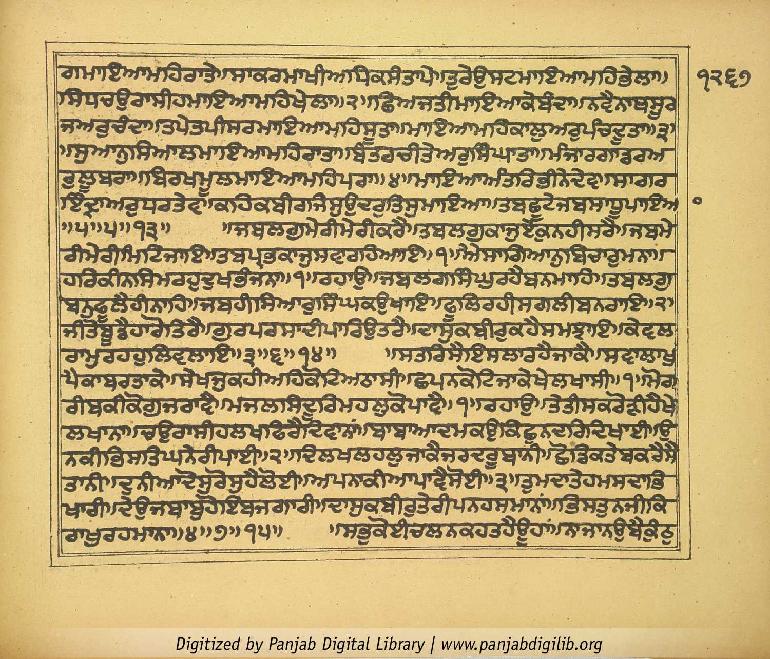 ਗਮਾਇਆਮਹਿਰਾਤੇ॥ਸਾਕਰਮਾਖੀਅਧਿਕਸੰਤਾਪੇ॥ਤੁਰੇਉਸਟਮਾਇਆਮਹਿਭੇਲਾ॥
ਸਿਧਚਉਰਾਸੀਹਮਾਇਆਮਹਿਖੇਲਾ॥੨॥ਛਿਅਜਤੀਮਾਇਆਕੇਬੰਦਾ॥ਨਵੈਨਾਥਸੂਰ
ਜਅਰੁਚੰਦਾ॥ਤਪੇਤਪੀਸਰਮਾਇਆਮਹਿਸੂਤਾ॥ਮਾਇਆਮਹਿਕਾਲੁਅਰੁਪੰਚਦੂਤਾ॥੩
॥ਸੁਆਨਸਿਆਲਮਾਇਆਮਹਿਰਾਤਾ॥ਬੰਤਰਚੀਤੇਅਰੁਸਿੰਘਾਤਾ॥ਮੰਜਾਰਗਾਡਰਅ
ਰੁਲੂਬਰਾ॥ਬਿਰਖਮੂਲਮਾਇਆਮਹਿਪਰਾ॥੪॥ਮਾਇਆਅੰਤਰਿਭੀਨੇਦੇਵ॥ਸਾਗਰ
ਇੰਦ੍ਰਾਅਰੁਧਰਤੇਵ॥ਕਹਿਕਬੀਰਜਿਸੁਉਦਰੁਤਿਸੁਮਾਇਆ॥ਤਬਛੂਟੇਜਬਸਾਧੂਪਾਇਆ
॥੫॥੫॥੧੩॥ ॥ਜਬਲਗੁਮੇਰੀਮੇਰੀਕਰੈ॥ਤਬਲਗੁਕਾਜੁਏਕੁਨਹੀਸਰੈ॥ਜਬਮੇ
ਰੀਮੇਰੀਮਿਟਿਜਾਇ॥ਤਬਪ੍ਰਭਕਾਜੁਸਵਾਰਹਿਆਇ॥੧॥ਐਸਾਗਿਆਨੁਬਿਚਾਰੁਮਨਾ॥
ਹਰਿਕੀਨਸਿਮਰਹੁਦੁਖਭੰਜਨਾ॥੧॥ਰਹਾਉ॥ਜਬਲਗਸਿੰਘੁਰਹੈਬਨਮਾਹਿ॥ਤਬਲਗੁ
ਬਨੁਫੂਲੈਹੀਨਾਹਿ॥ਜਬਹੀਸਿਆਰੁਸਿੰਘਕਉਖਾਇ॥ਫੂਲਿਰਹੀਸਗਲੀਬਨਰਾਇ॥੨॥
ਜੀਤੋਬੂਡੈਹਾਰੋਤਿਰੈ॥ਗੁਰਪਰਸਾਦੀਪਾਰਿਉਤਰੈ॥ਦਾਸੁਕਬੀਰੁਕਹੈਸਮਝਾਇ॥ਕੇਵਲ
ਰਾਮੁਰਹਹੁਲਿਵਲਾਇ॥੩॥੬॥੧੪॥ ॥ਸਤਰਿਸੈਇਸਲਾਰਹੈਜਾਕੇ॥ਸਵਾਲਾਖੁ
ਪੈਕਾਬਰਤਾਕੇ॥ਸੇਖਜੁਕਹੀਅਹਿਕੋਟਿਅਠਾਸੀ॥ਛਪਨਕੋਟਿਜਾਕੇਖੇਲਖਾਸੀ॥੧॥ਮੋਗ
ਰੀਬਕੀਕੋਗੁਜਰਾਵੈ॥ਮਜਲਸਿਦੂਰਿਮਹਲੁਕੋਪਾਵੈ॥੧॥ਰਹਾਉ॥ਤੇਤੀਸਕਰੋੜੀਹੈਖੇ
ਲਖਾਨਾ॥ਚਉਰਾਸੀਹਲਖਫਿਰੈਦਿਵਾਨਾਂ॥ਬਾਬਾਆਦਮਕਉਕਿਛੁਨਦਰਿਦਿਖਾਈ॥ਉ
ਨਭੀਭਿਸਤਿਘਨੇਰੀਪਾਈ॥੨॥ਦਿਲਖਲਹਲੁਜਾਕੈਜਰਦਰੂਬਾਨੀ॥ਛੋਡਿਕਤੇਬਕਰੈਸੈ
ਤਾਨੀ॥ਦੁਨੀਆਦੋਸੁਰੋਸੁਹੈਲੋਈ॥ਅਪਨਾਕੀਆਪਾਵੈਸੋਈ॥੩॥ਤੁਮਦਾਤੇਹਮਸਦਾਭਿ
ਖਾਰੀ॥ਦੇਉਜਬਾਬੁਹੋਇਬਜਗਾਰੀ॥ਦਾਸੁਕਬੀਰੁਤੇਰੀਪਨਹਸਮਾਨਾਂ॥ਭਿਸਤੁਨਜੀਕਿ
ਰਾਖੁਰਹਮਾਨਾ॥੪॥੭॥੧੫॥ ॥ਸਭੁਕੋਈਚਲਨਕਹਤਹੈਊਹਾਂ॥ਨਾਜਾਨਉਬੈਕੁੰਠੁ
੧੨੬੭
Digitized by Panjab Digital Library | www.panjabdigilib.org